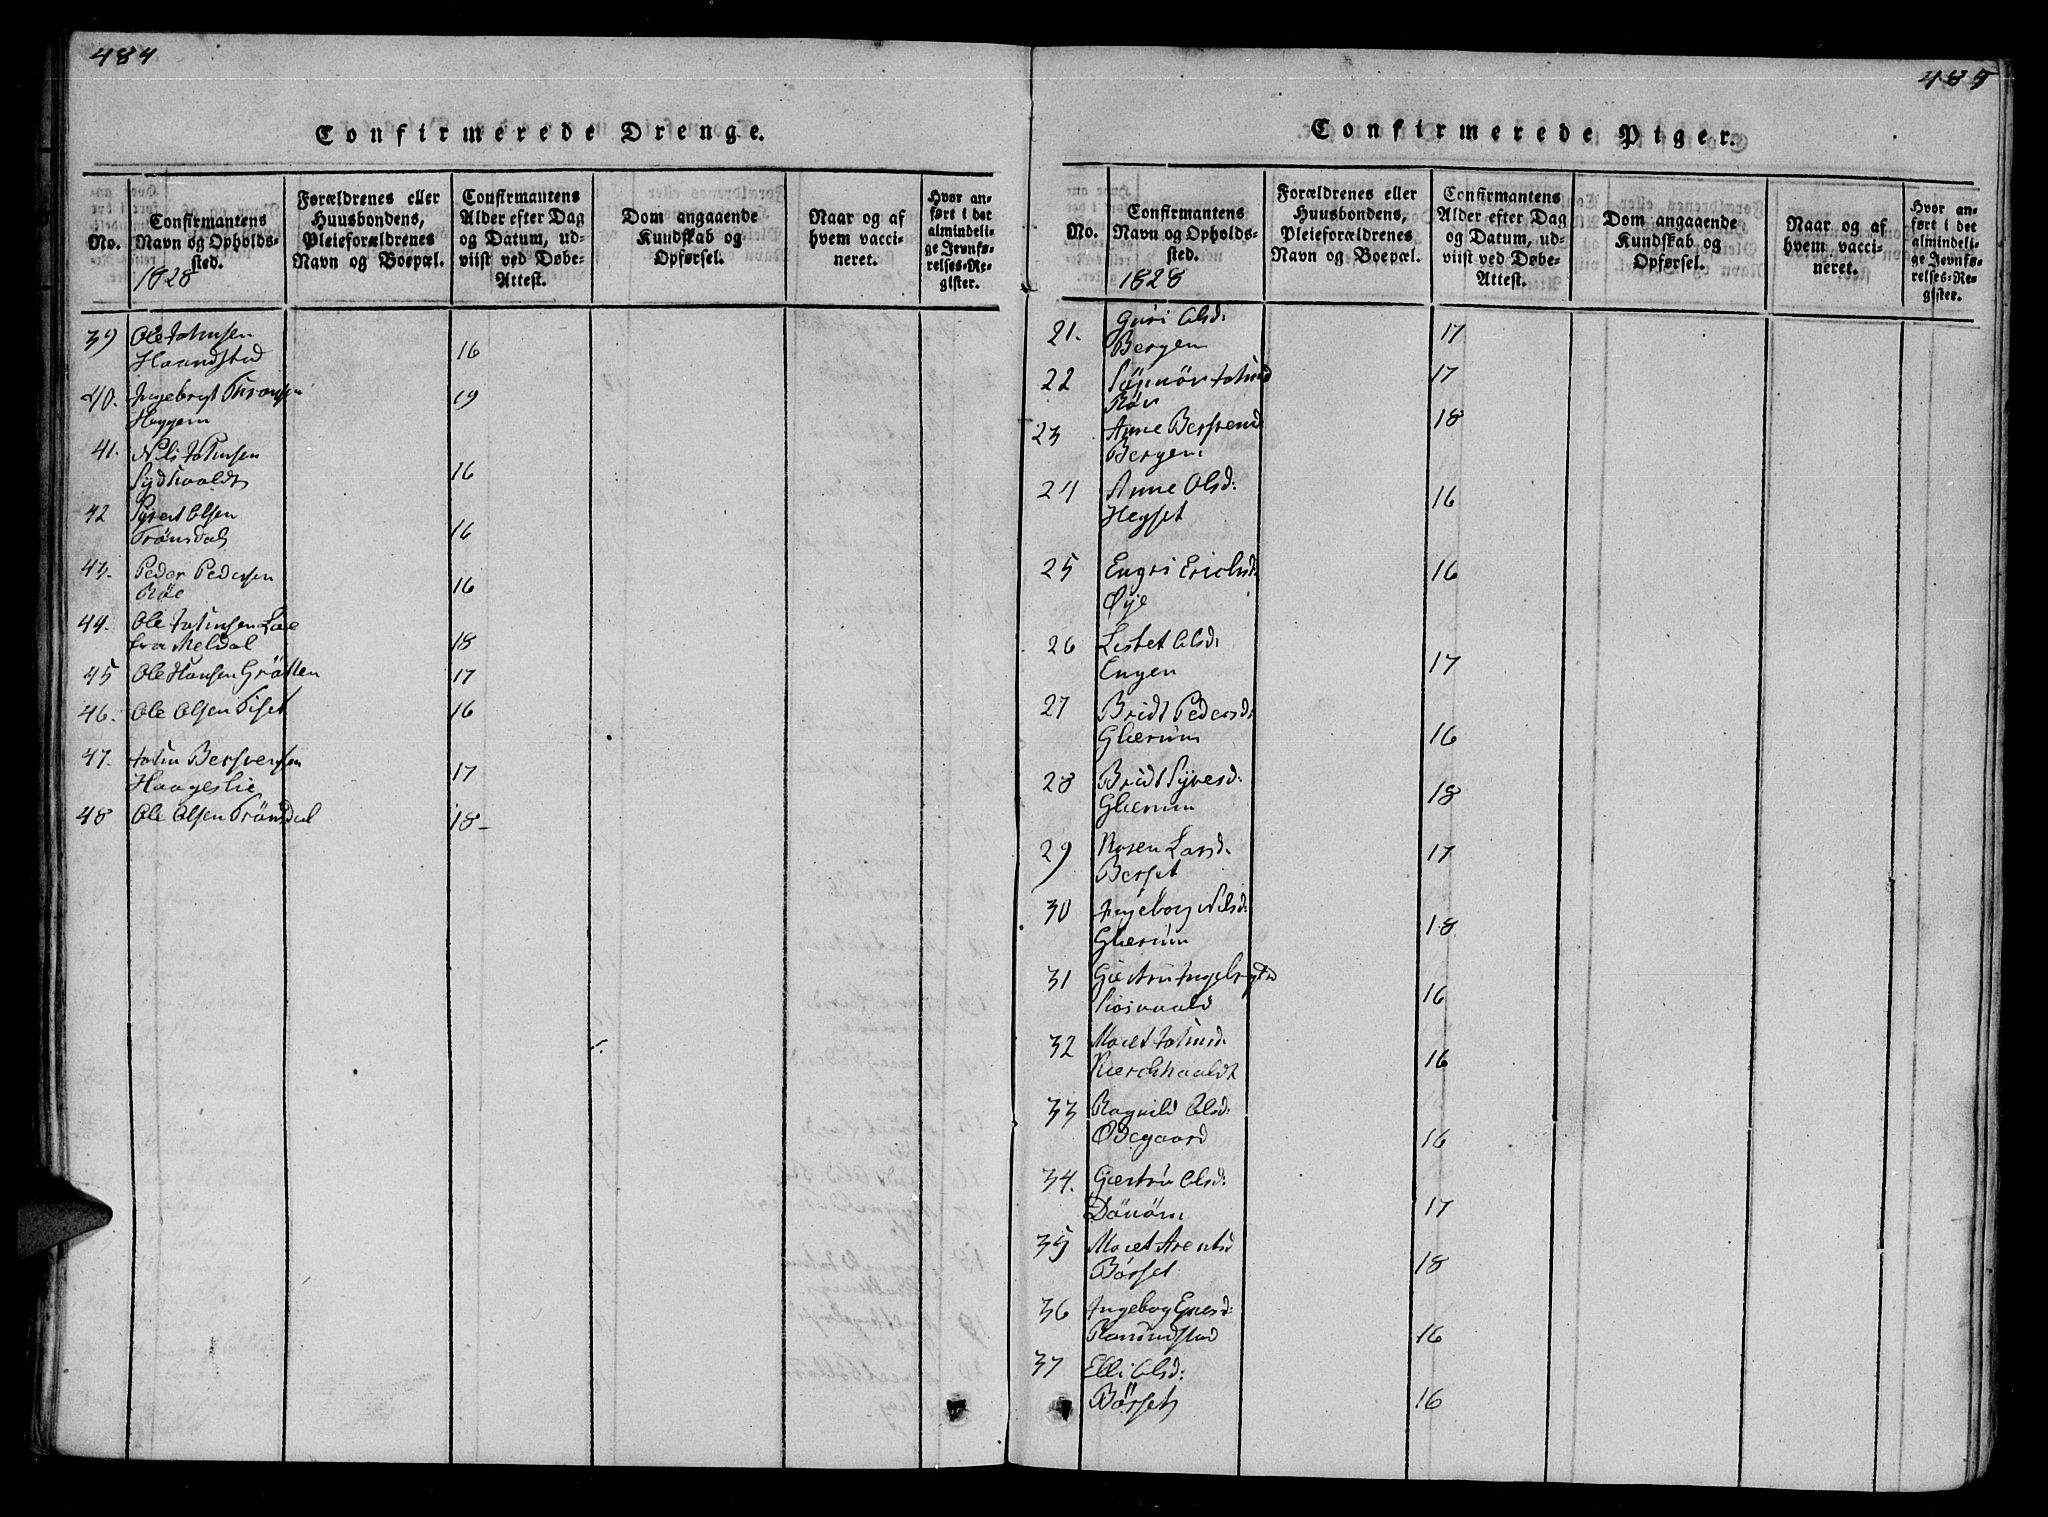 484
Confirmerede Drenge.
No.
Confirmantens
Navn og Opholds-
sted.
1828
Forældrenes eller
Huusbondens,
Pleieforældrenes
Navn og Boepæl.
Confirmantens
Alder efter Dag
og Datum, ud-
viist ved Døbe-
Attest.
Dom angaaende
Kundskab og
Opførsel.
Naar og af
hvem vacci-
neret.
Hvor an-
ført i det
almindeli-
ge Jevnfø-
relses-Re-
gister.
39 Ole Johnsen
Haandstad 16
40. Ingebrigt Thronsen 19
Heggem
41. Nils Johnsen
Sydhaaldt 16
42 Syvert Olsen
Trönsdal 16
43. Peder Pedersen
Röe 16
44. Ole Johnsen Lee
fra Meldal 18
45 Ole Hansen Grötten 17
46. Ole Olsen Tiset 16
47. John Bersvensen
Haageslie 17
48 Ole Olsen Trönsdal 18-
485
Confirmerede Piger.
No.
Confirmantens
Navn og Opholds-
sted.
1828
Forældrenes eller
Huusbondens,
Pleieforældrenes
Navn og Boepæl.
Confirmantens
Alder efter Dag
og Datum, ud-
viist ved Døbe-
Attest.
Dom angaaende
Kundskab og
Opførsel.
Naar og af
hvem vacci-
neret.
Hvor an-
ført i det
almindeli-
ge Jevnfø-
relses-Re-
gister.
21. Guri Olsd: 17
Bergem
22 Johnsd 17
Röv
23 Anne Bersvend: 18
Bergem
24 Anne Olsd: 16
Hegset
25 Engri Erichsd: 16
Øye
26 Lisbet Olsd:
Engen 17
27 Bridt Pedersd:
Glærum 16
28 Bridt Syvesd:
Glærum 18
29 Larsd. 17
Berset
30 Ingeborg Nilsd:
Glærum 18
31 Ingebrigtsd
16
32 Maret Johnsd:
16
33 Ragnild Olsd:
Ødegaard 16
34. Giertru Olsd:
Dönöm 17
35 Maret Arentsd
Börset 18
36 Ingebog
Randudstad 16
37 Elli Olsd:
Börset 16